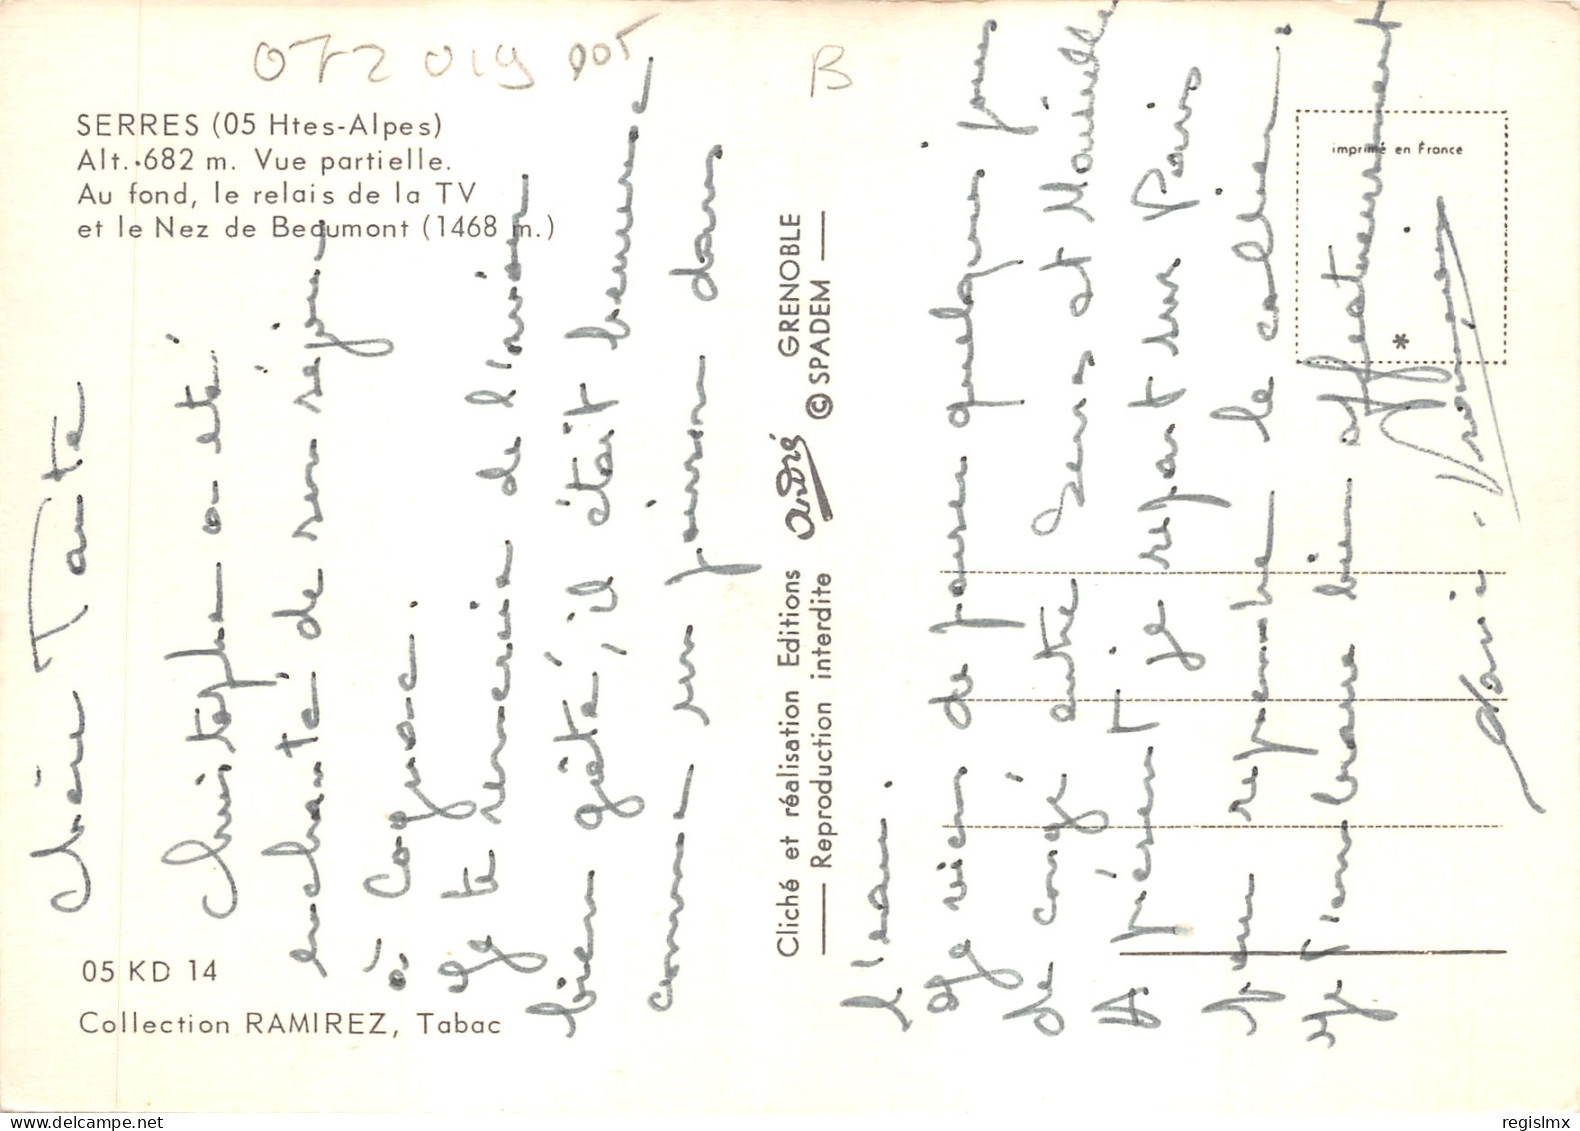 072 019 005
B
SERRES (05 Htes-Alpes)
Alt. 682 m. Vue partielle.
Au fond, le relais de la TV
et le Nez de Beaumont (1468 m.)
05 KD 14
Collection RAMIREZ, Tabac
Cliché et réalisation Editions André GRENOBLE
Reproduction interdite © SPADEM
imprimé en France
*
Chère Tante
Christophe a été
enchanté de son séjour
à Cognac.
Je te remercie de l'avoir
bien gâté, il était heureux
comme un poisson dans
l'eau.
Je viens de passer quelques jours
de congé entre Sens et Marseille
A présent je repart sur Paris
pour reprendre le collier.
Je t'embrasse bien affectueusement
regislmx